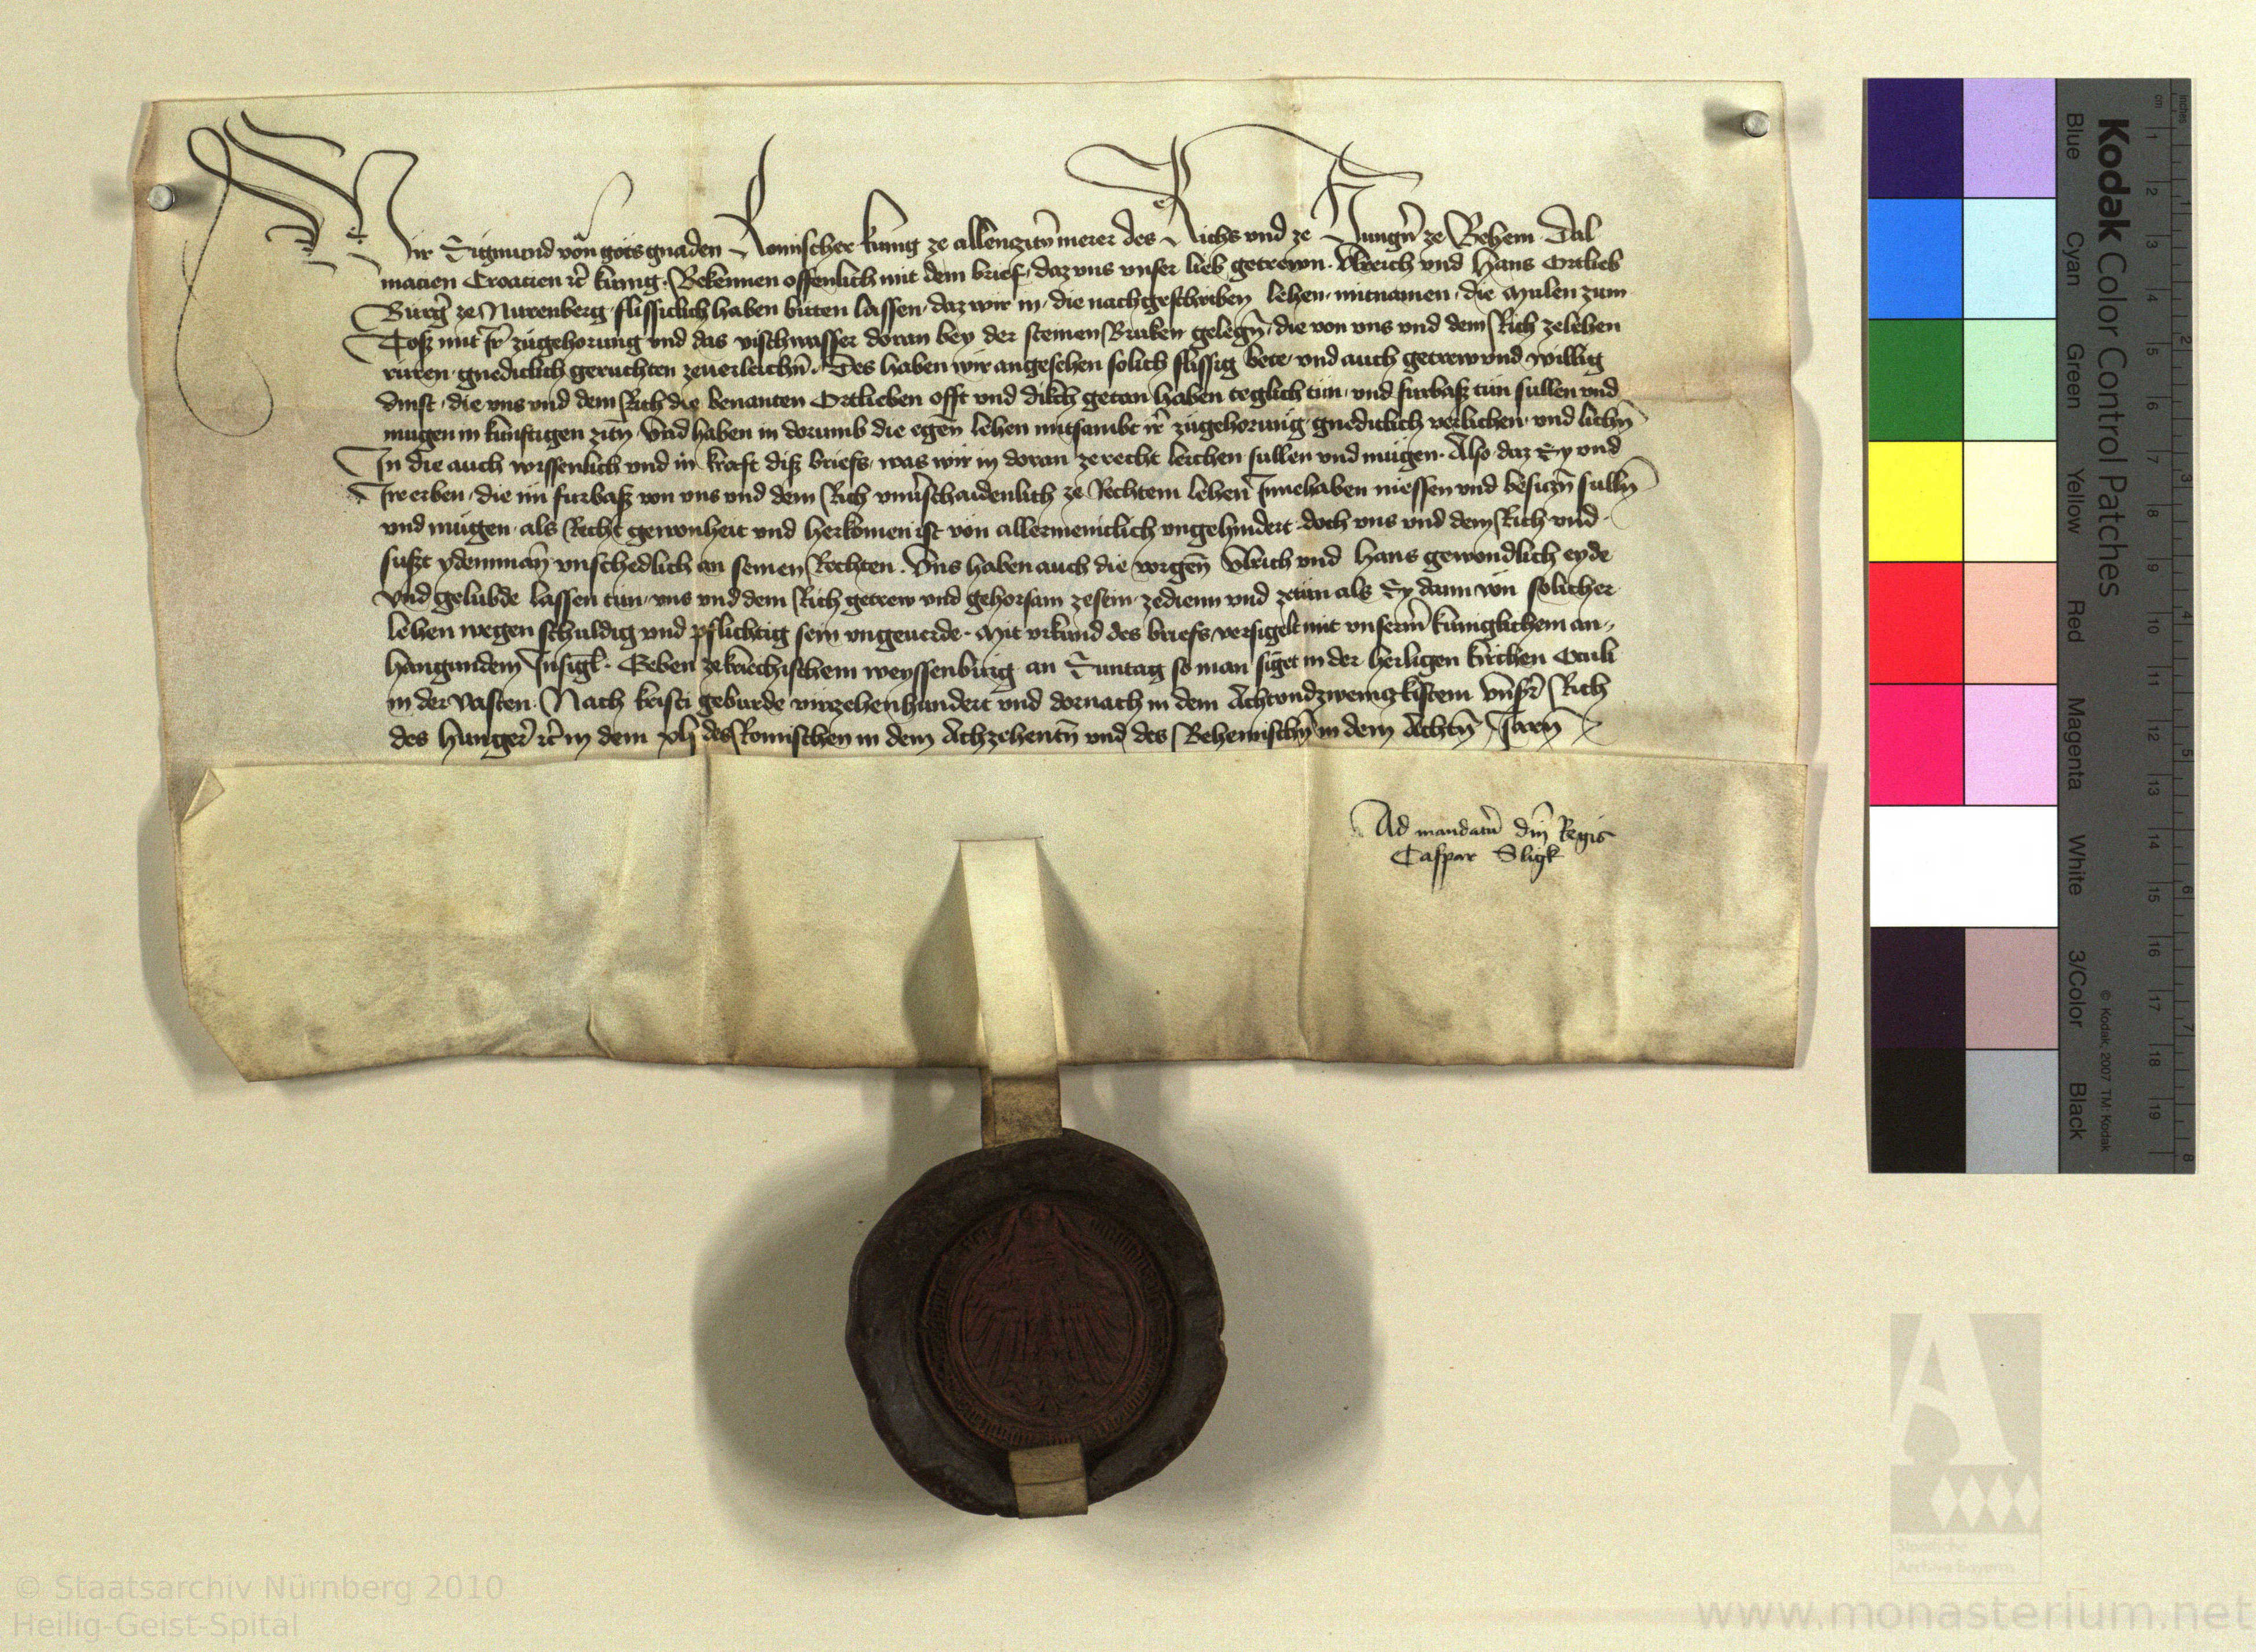 Wir Sigmund von gots gnaden Romischer kunig ze allenczitn merer des Richs vnd ze Hungern ze Behem Dal
macien Croacien etc kunig. Bekennen offenlich mit dem brief, daz vns vnser lieb getrewn. Vlreich vnd Hans Ortlieb
Burger ze Nurenberg flissiclich haben bitten lassen, daz wir in, die nachgeschriben lehen, mitnamen, die Mulen zum
Tosz mit ir zugehorung vnd das vischwasser doran bey der steinen Bruken gelegn, die von vns vnd dem Rich ze lehen
ruren, gnediclich geruchten zeuerleichn. Des haben wir angesehen solich flissig bete, vnd auch getrew vnd willig
dinst, die vns vnd dem Rich die benanten Ortlieben offt vnd dikch getan haben teglich tun, vnd furbasz tun sullen vnd
mugen in kunftigen zitn, Vnd haben in dorumb die egen lehen mitsambt ir zugehorung gnediclich verlichen, vnd lichn
In die auch wissenlich vnd in kraft disz briefs, was wir in doran ze recht leichen sullen vnd mugen. Also daz Sy vnd
Ire erben, die nu furbasz von vns vnd dem Rich vnuerschaidenlich ze Rechtem lehen Innehaben niessen vnd besiczn sulln
vnd mugen, als Recht gewonheit vnd herkomen ist von allermeniclich vngehindert, doch vns vnd dem Rich vnd
suszt ydermann vnschedlich an seinen Rechten. Vns haben auch die vorgen Vlrich vnd Hans gewondlich eyde
vnd gelubde lassen tun, vns vnd dem Rich getrew vnd gehorsam zesein, zedienn vnd zetun als Sy dann von solicher
lehen wegen schuldig vnd pflichtig sein vngeuerde. Mit vrkund des briefs versigelt mit vnserm kuniglichem an
hangundem Insigl. Geben ze kriechischem weyssenburg an Suntag so man singet in der heiligen kirchen Oculi
in der vasten. Nach kristi geburde virzehenhundert vnd dornach in dem Achtvndzwenczkistem vnser Rich
des hunger etc in dem xlj des Romischen in dem Achzehentn vnd des Behemischn in dem Achtn Jaren
Ad mandatum dni Regis
Caspar Sligk
Kodak Color Control Patches
Blue Cyan Green Yellow Red Magenta White 3/Color Black
© Kodak, 2007 TM: Kodak
cm 1 2 3 4 5 6 7 8 9 10 11 12 13 14 15 16 17 18 19
inches 1 2 3 4 5 6 7 8
Staatliche
Archive Bayerns
© Staatsarchiv Nürnberg 2010
Heilig-Geist-Spital
www.monasterium.net